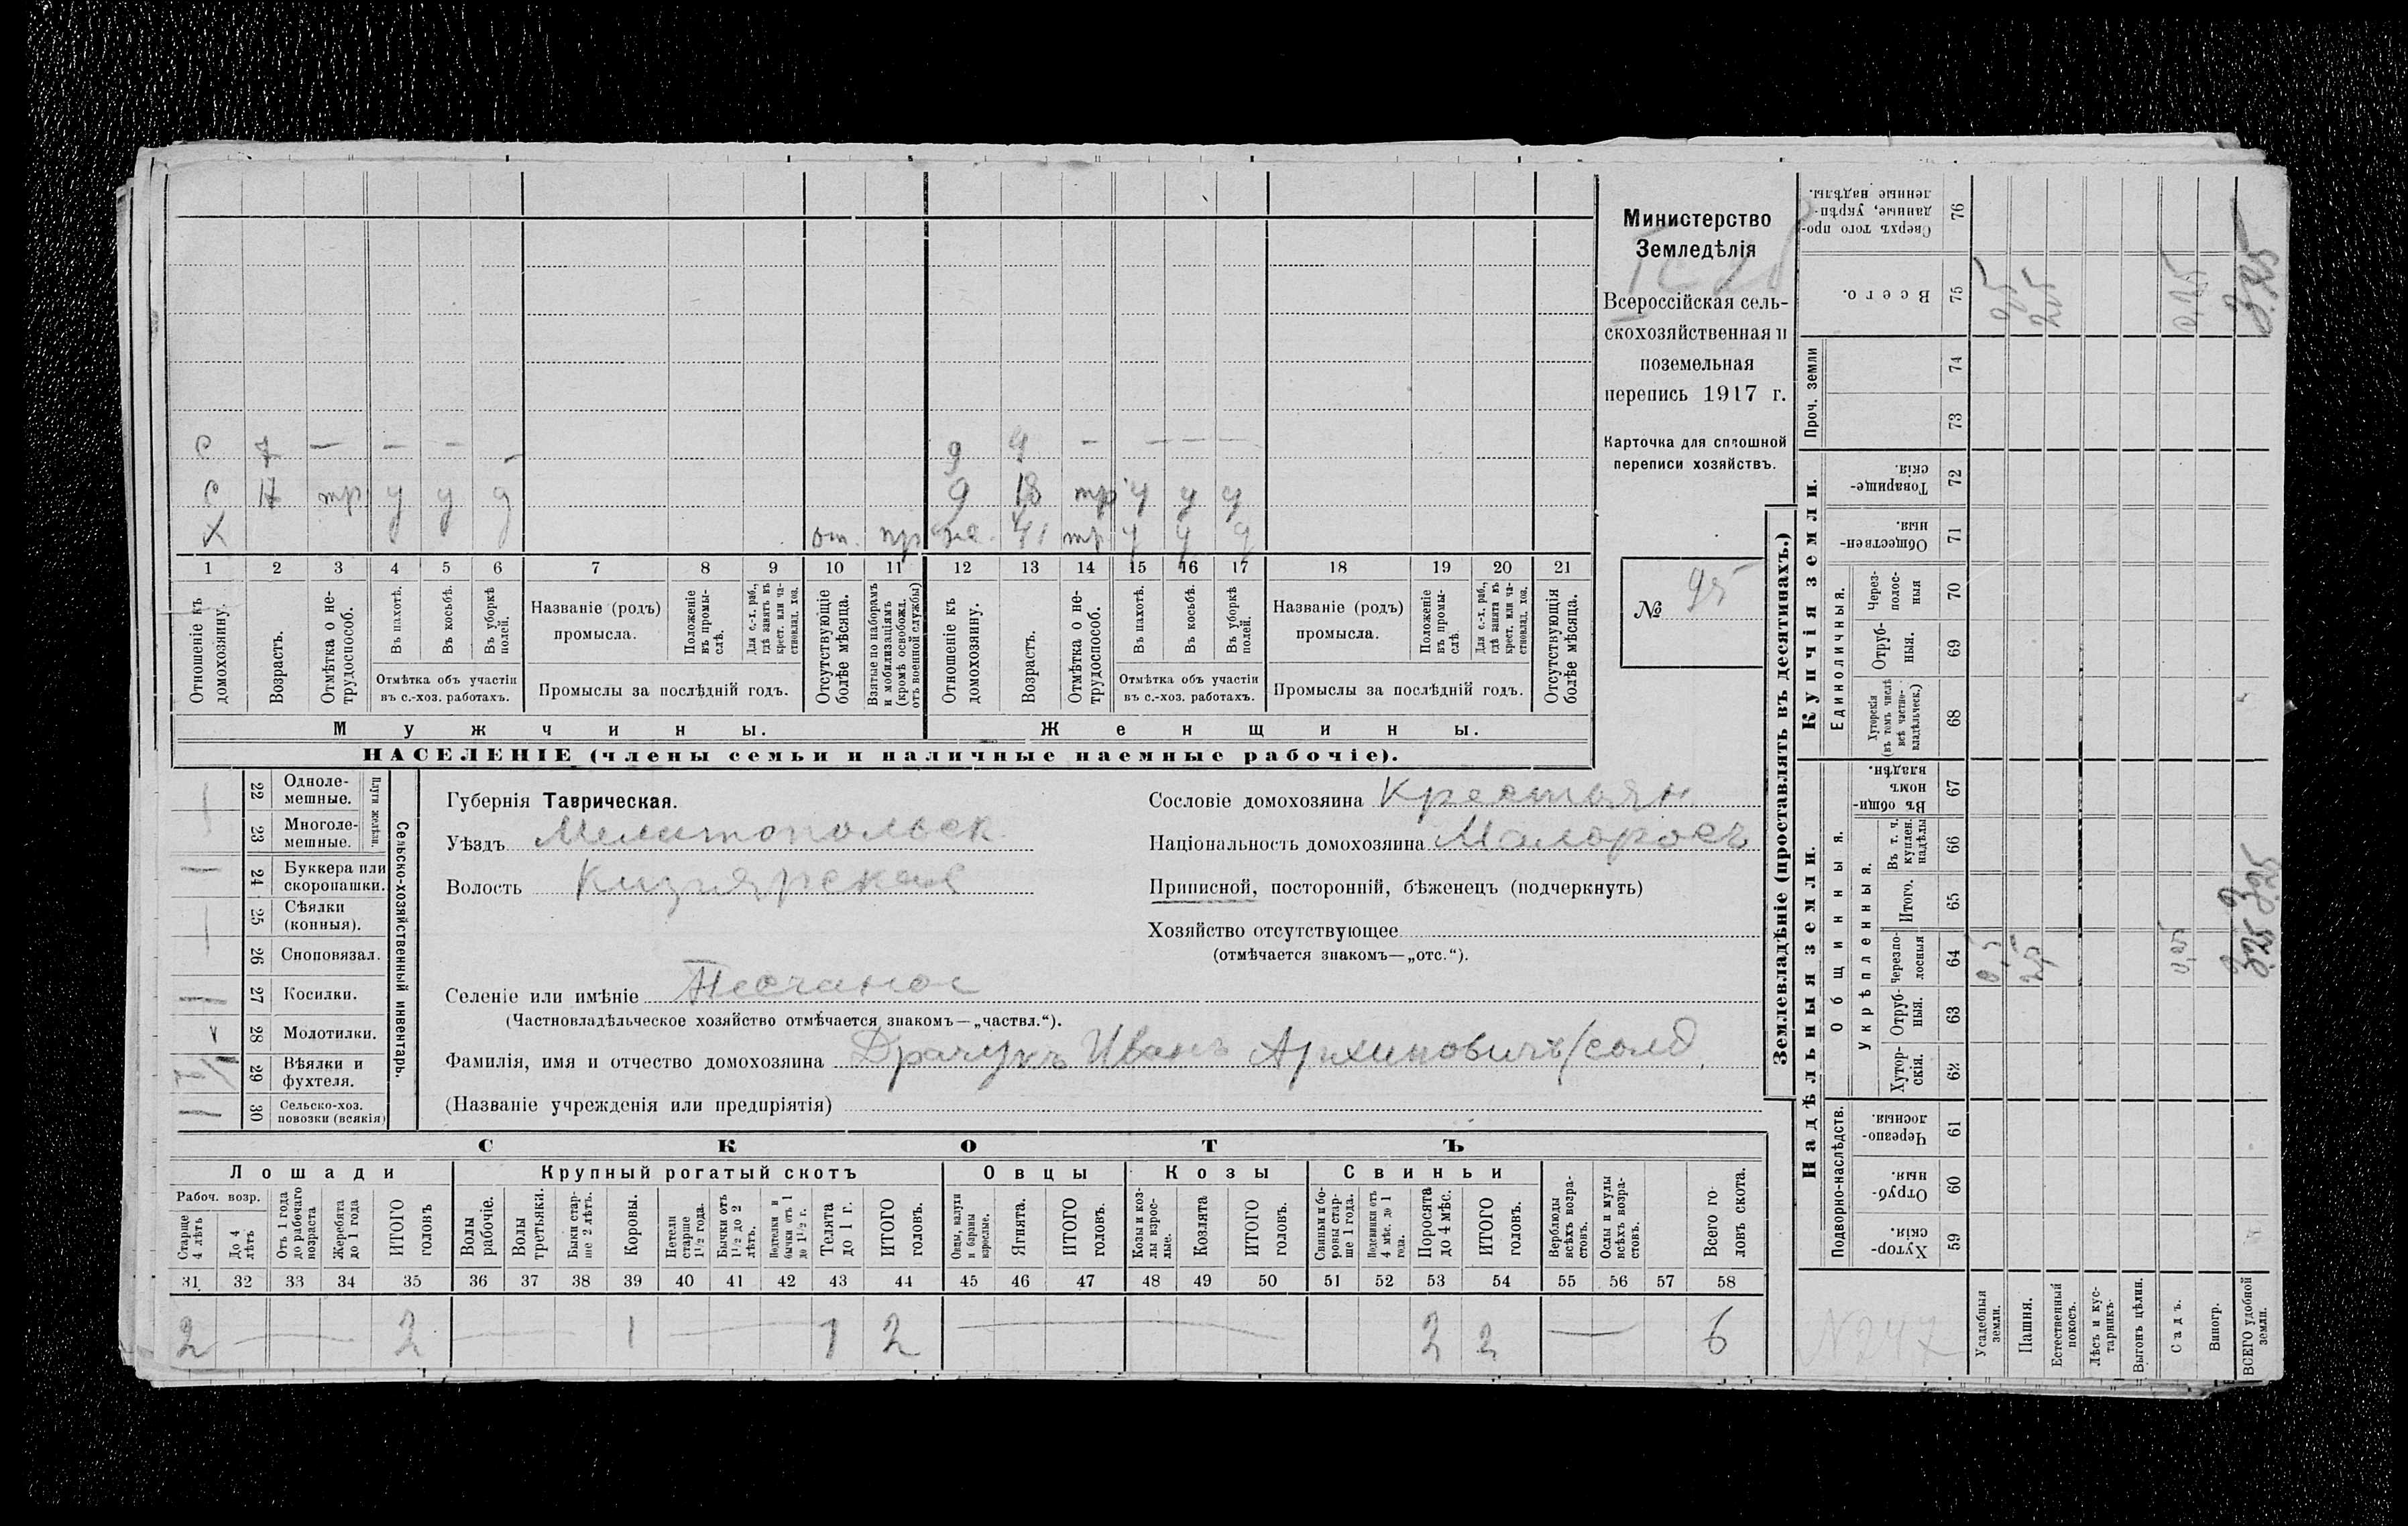 с 7 — — — — д 9 — — — —
с 17 тр у у у д 18 тр у у у
Х от. пр жа. 41 тр у у у
1 2 3 4 5 6 7 8 9 10 11 12 13 14 15 16 17 18 19 20 21
Отношеніе къ домохозяину.
Возрастъ.
Отмѣтка о нетрудоспособ.
Въ пахотѣ.
Въ косьбѣ.
Въ уборкѣ полей.
Отмѣтка объ участіи
въ с.-хоз. работахъ.
Названіе (родъ)
промысла.
Положеніе въ промыслѣ.
Для с.-х. раб., гдѣ занятъ въ крест. или частновлад. хоз.
Промыслы за послѣдній годъ.
Отсутствующіе болѣе мѣсяца.
Взятые по наборамъ и мобилизаціямъ (кромѣ освобожд. отъ военной службы)
Отношеніе къ домохозяину.
Возрастъ.
Отмѣтка о нетрудоспособ.
Въ пахотѣ.
Въ косьбѣ.
Въ уборкѣ полей.
Отмѣтка объ участіи
въ с.-хоз. работахъ.
Названіе (родъ)
промысла.
Положеніе въ промыслѣ.
Для с.-х. раб., гдѣ занята въ крест. или частновлад. хоз.
Промыслы за послѣдній годъ.
Отсутствующія болѣе мѣсяца.
Мужчины. Женщины.
НАСЕЛЕНІЕ (члены семьи и наличные наемные рабочіе).
Министерство
Земледѣлія
Всероссійская сель-
скохозяйственная и
поземельная
перепись 1917 г.
Карточка для сплошной
переписи хозяйствъ.
№ 95
22 Одноле-
мешные.
23 Многоле-
мешные.
Плуги желѣзн.
24 Буккера или
скоропашки.
25 Сѣялки
(конныя).
26 Сноповязал.
27 Косилки.
28 Молотилки.
29 Вѣялки и
фухтеля.
30 Сельско-хоз.
повозки (всякія)
Сельско-хозяйственный инвентарь.
Губернія Таврическая.
Уѣздъ Мелитопольск
Волость Кизиярская
Селеніе или имѣніе Песчаное
(Частновладѣльческое хозяйство отмѣчается знакомъ—„частвл.“).
Фамилія, имя и отчество домохозяина Драчукъ Иванъ Архиповичъ/солд.
(Названіе учрежденія или предпріятія)
Сословіе домохозяина Крестьян
Національность домохозяина Малоросъ
Приписной, посторонній, бѣженецъ (подчеркнуть)
Хозяйство отсутствующее
(отмѣчается знакомъ—„отс.“).
СКОТЪ
Лошади Крупный рогатый скотъ Овцы Козы Свиньи
Рабоч. возр.
Старше 4 лѣтъ
До 4 лѣтъ
Отъ 1 года до рабочаго возраста
Жеребята до 1 года
ИТОГО головъ
Волы рабочіе.
Волы третьяки.
Быки старше 2 лѣтъ.
Коровы.
Нетели старше 1½ года.
Бычки отъ 1½ до 2 лѣтъ.
Подтелки и бычки отъ 1 до 1½ г.
Телята до 1 г.
ИТОГО головъ.
Овцы, валухи и бараны взрослые.
Ягнята.
ИТОГО головъ.
Козы и козлы взрослые.
Козлята
ИТОГО головъ.
Свиньи и боровы старше 1 года.
Подсвинки отъ 4 мѣс. до 1 года.
Поросята до 4 мѣс.
ИТОГО головъ.
Верблюды всѣхъ возрастовъ.
Ослы и мулы всѣхъ возрастовъ.
Всего головъ скота.
31 32 33 34 35 36 37 38 39 40 41 42 43 44 45 46 47 48 49 50 51 52 53 54 55 56 57 58
2 — 2 — 1 — 1 2 — 2 2 — 6
Землевладѣніе (проставлять въ десятинахъ.)
Надѣльныя земли. Купчія земли. Проч. земли
Подворно-наслѣдств.
Общинныя.
Укрѣпленныя.
Единоличныя.
Хуторскія. 59
Отрубныя. 60
Черезполосныя. 61
Хуторскія. 62
Отрубныя. 63
Черезполосныя 64
Итого. 65
Въ т. ч. куплен. надѣлы 66
Въ общинномъ владѣн. 67
Хуторскія (въ томъ числѣ всѣ частновладѣльческ.) 68
Отрубныя. 69
Черезполосныя 70
Общественныя. 71
Товарищескія. 72
73
74
Всего. 75
Сверхъ того проданные, укрѣпленные надѣлы. 76
Усадебныя земли. 0,5
Пашня.
Естественный покосъ.
Лѣсъ и кустарникъ.
Выгонъ цѣлин.
Садъ. 0,25 0,25
Виногр.
ВСЕГО удобной земли. 3,25 3,25
№247